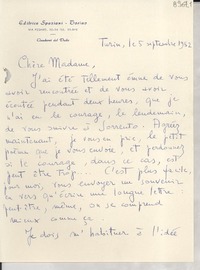 Editrice Speziani - Torino
Torino, le 5 septembre 1962
Chère Madame,
J'ai été tellement émue de vous
avoir rencontrée et de vous avoir
écoutée pendant deux heures, que je
n'ai eu le courage, le lendemain,
de vous suivre à Sorrento. Après
maintenant, je vous en prie, le petit
poème que je vous envoie, et pardonnez
si le courage, dans ce cas, est
peut être trop... C'est plus facile,
pour moi, vous envoyer un souvenir
en vers qu'écrire une longue lettre:
peut-être, même, on se comprend
mieux comme ça.
Je dois m'habituer à l'idée